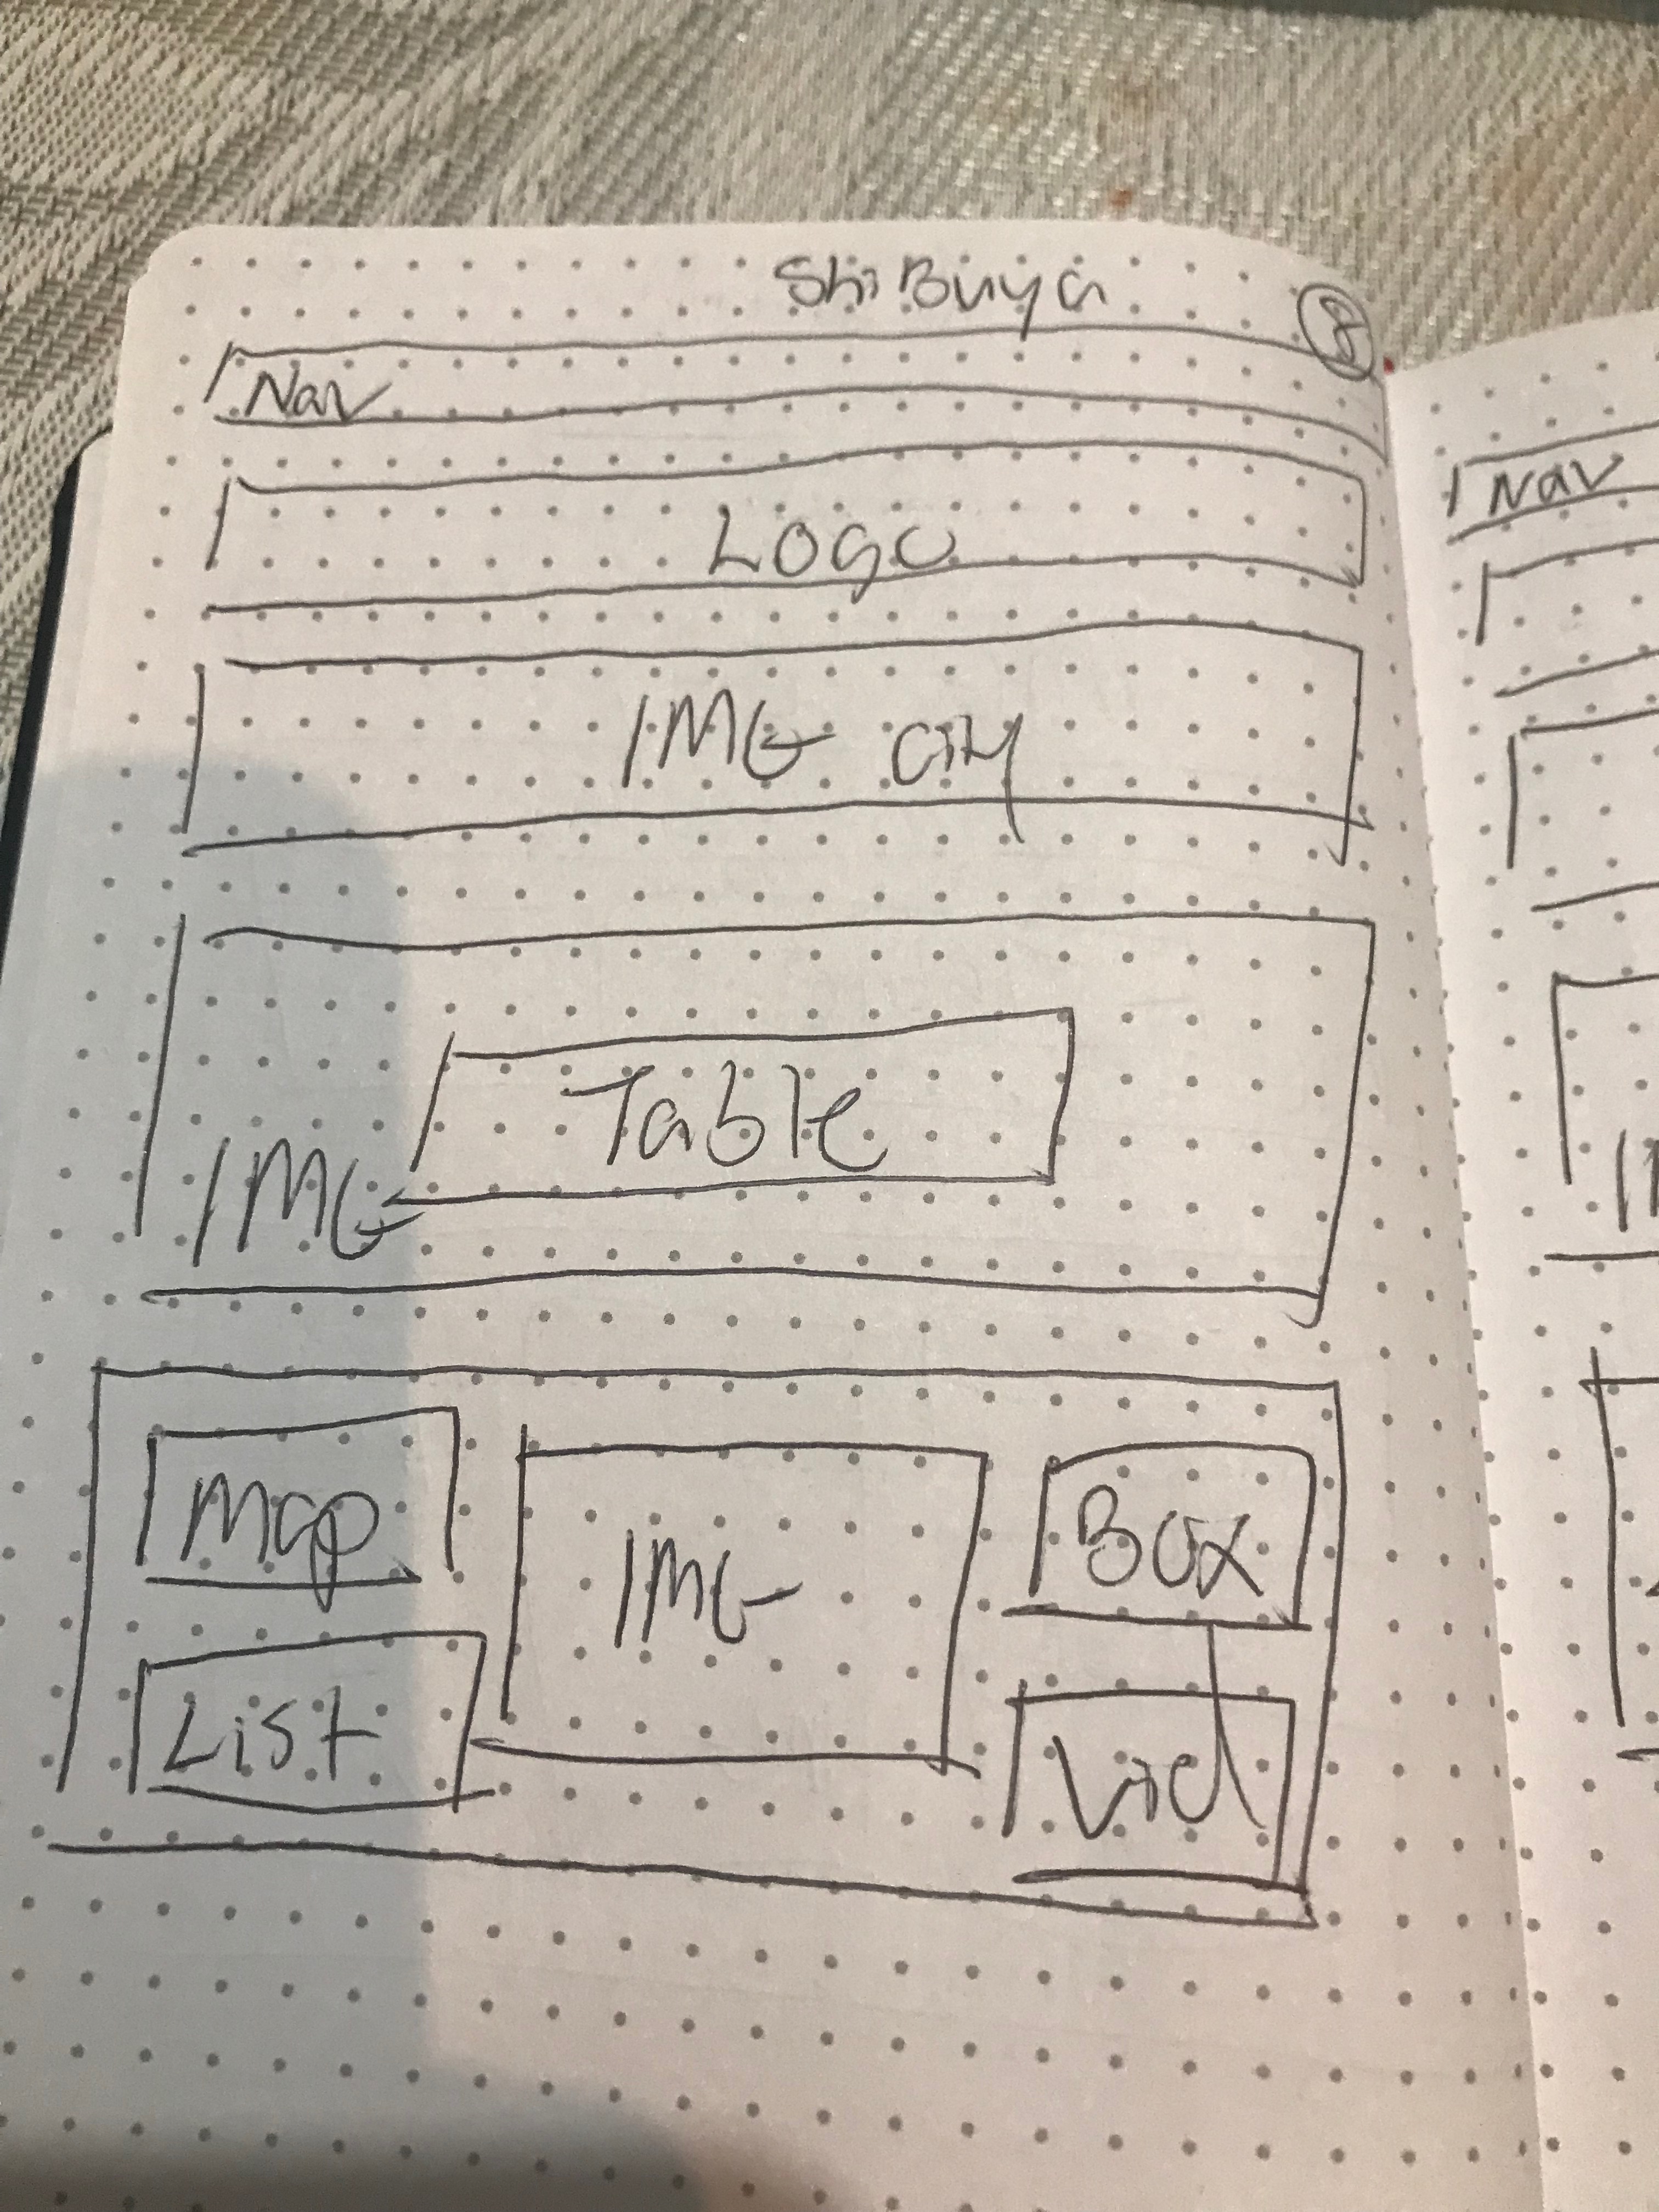 ShiBuya
8
Nav
Logo
IMG City
Table
IMG
Map
IMG
Box
List
Vid
Nav